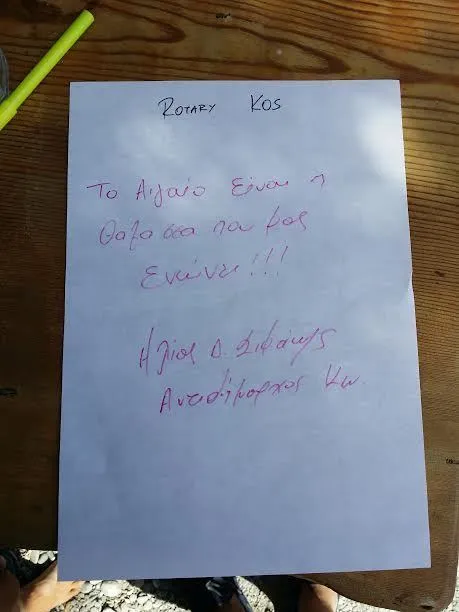 ROTARY KOS
Το Αιγαίο είναι η
θάλασσα που μας
Ενώνει!!!
Ηλίας Δ. Σιφάκης
Αντιδήμαρχος Κω.